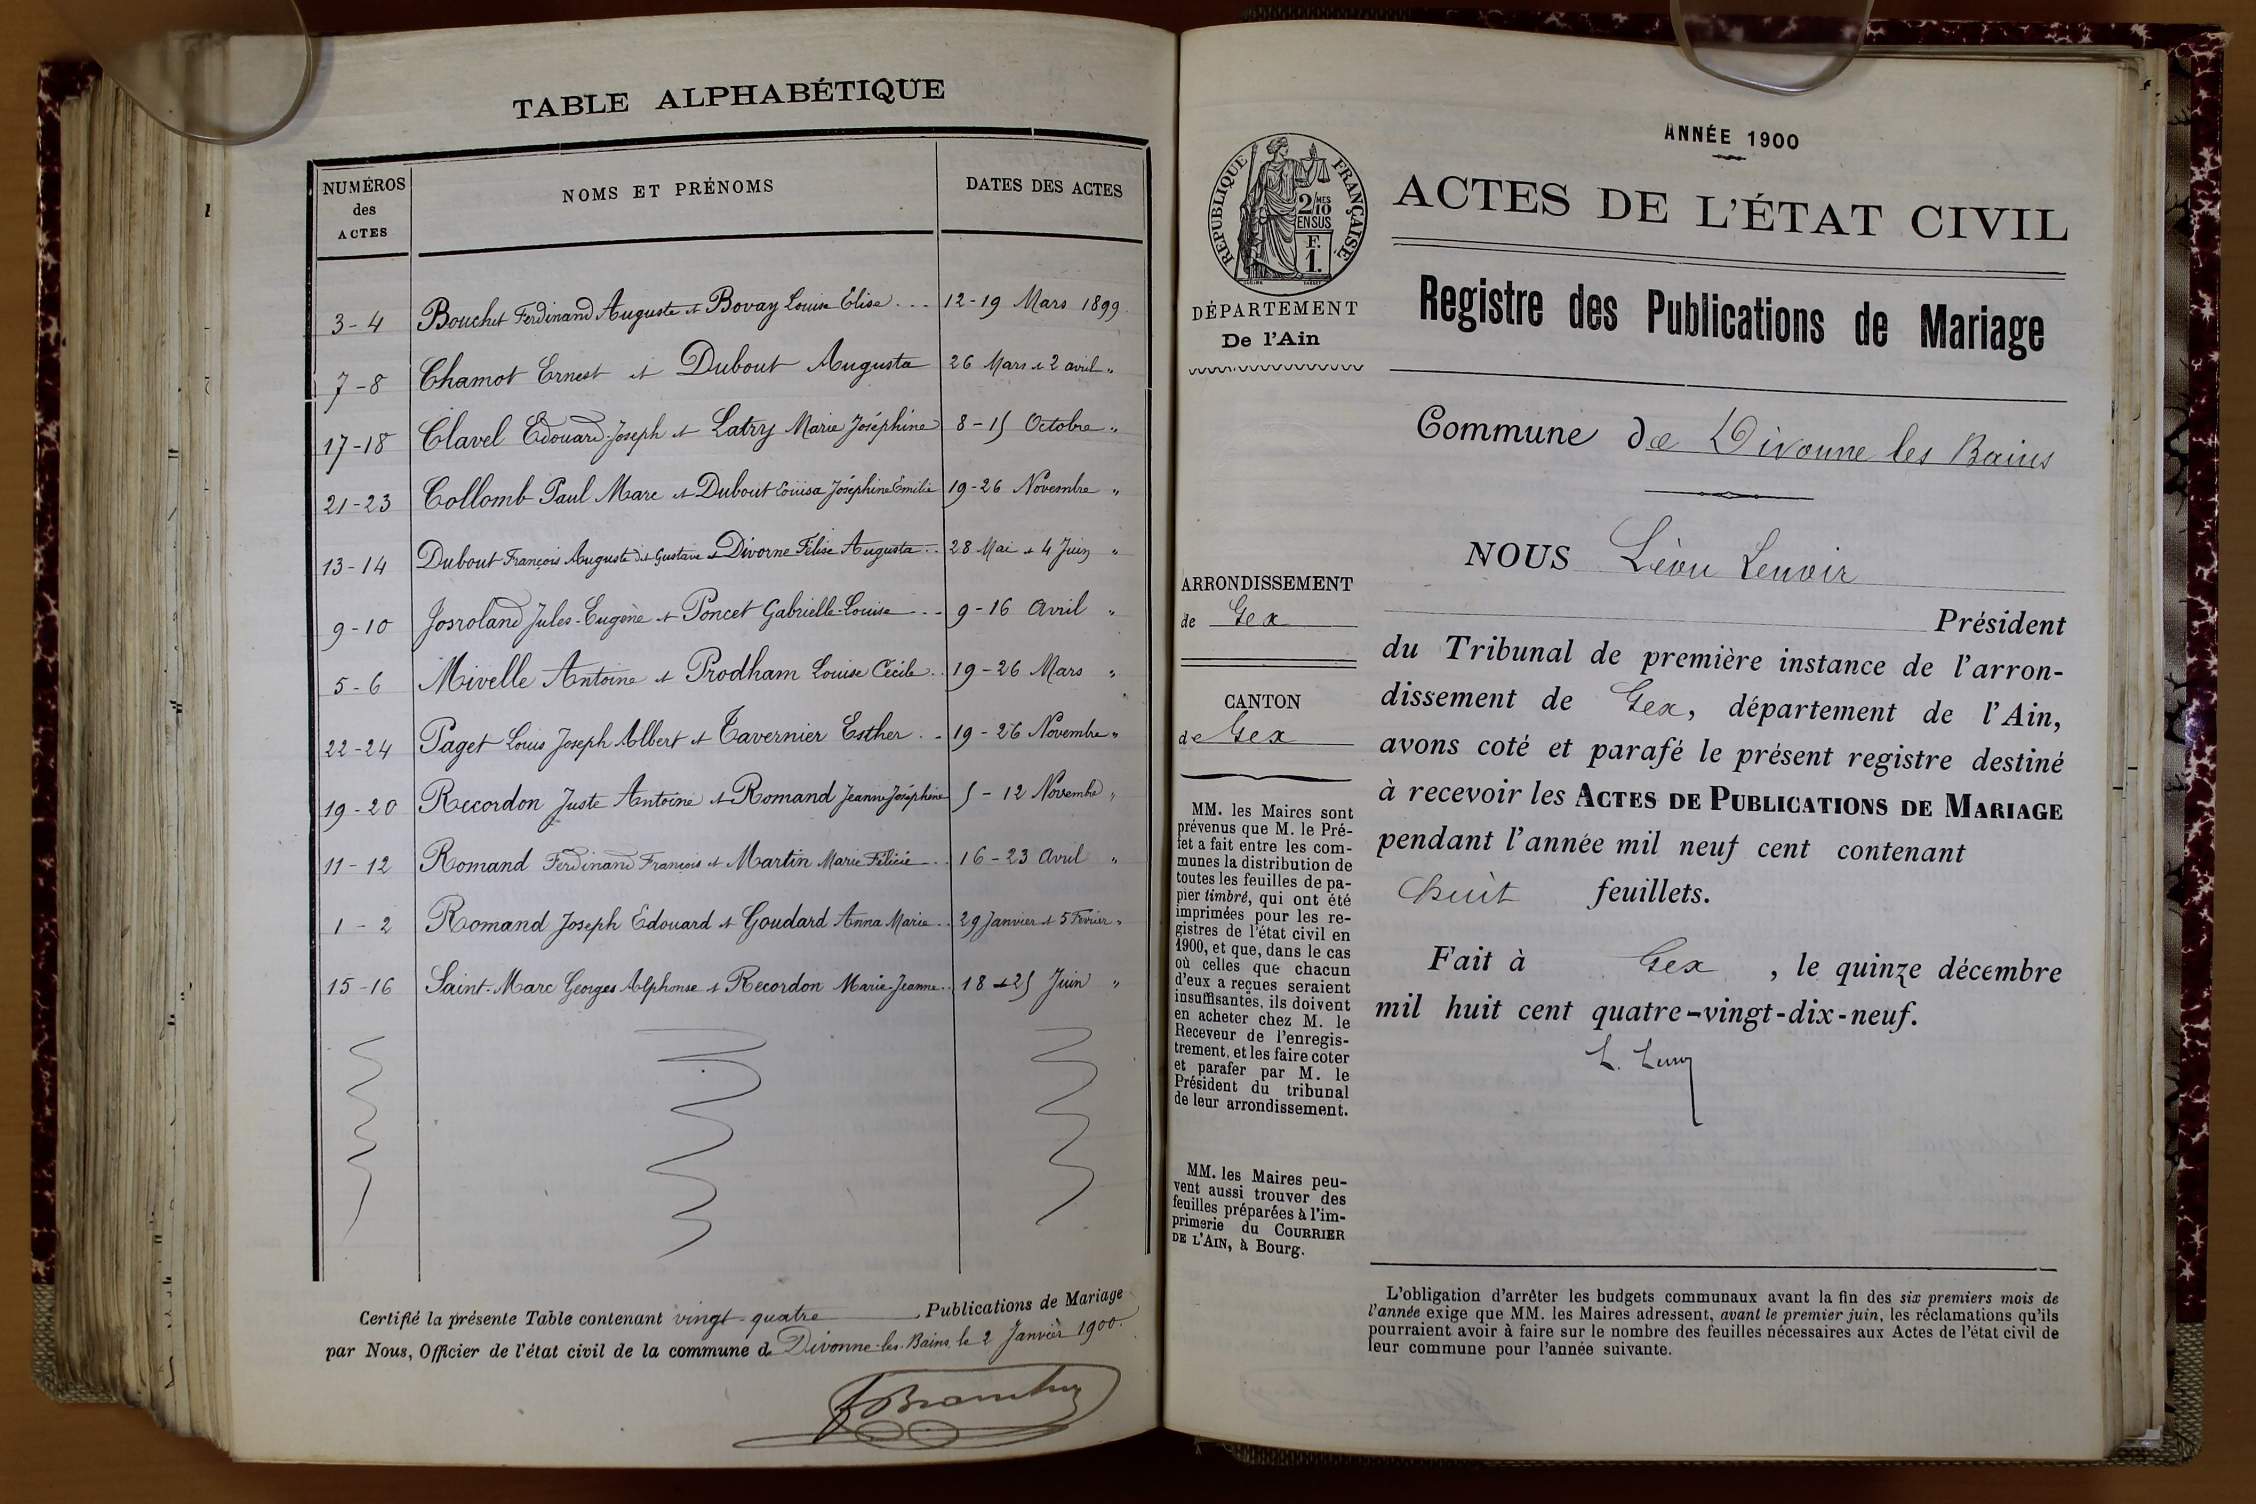 TABLE ALPHABÉTIQUE
NUMÉROS
des
ACTES
NOMS ET PRÉNOMS
DATES DES ACTES
3-4 Bouchet Ferdinand Auguste et Bovay Louise Elise 12-19 Mars 1899
7-8 Chamot Ernest et Dubout Augusta 26 Mars et 2 avril "
17-18 Clavel Edouard-Joseph et Latry Marie Joséphine 8-15 Octobre "
21-23 Collomb Paul Marc et Dubout Louisa Joséphine Emilie 19-26 Novembre "
13-14 Dubout François Auguste dit Gustave et Divorne Félise Augusta 28 Mai et 4 Juin "
9-10 Josroland Jules-Eugène et Poncet Gabrielle-Louise 9-16 Avril "
5-6 Mivelle Antoine et Prodham Louise Cécile 19-26 Mars "
22-24 Paget Louis Joseph Albert et Tavernier Esther 19-26 Novembre "
19-20 Recordon Juste Antoine et Romand Jeanne Joséphine 5-12 Novembre "
11-12 Romand Ferdinand François et Martin Marie Félicie 16-23 Avril "
1-2 Romand Joseph Edouard et Goudard Anna Marie 29 Janvier et 5 Février "
15-16 Saint-Marc Georges Alphonse et Recordon Marie-Jeanne 18 et 25 Juin "
Certifié la présente Table contenant vingt-quatre Publications de Mariage
par Nous, Officier de l'état civil de la commune de Divonne-les-Bains, le 2 Janvier 1900.
ANNÉE 1900
RÉPUBLIQUE FRANÇAISE
2/10MES
EN SUS
F.
1.
ACTES DE L'ÉTAT CIVIL
DÉPARTEMENT
De l'Ain
Registre des Publications de Mariage
Commune de Divonne les Bains
ARRONDISSEMENT
de Gex
CANTON
de Gex
MM. les Maires sont
prévenus que M. le Pré-
fet a fait entre les com-
munes la distribution de
toutes les feuilles de pa-
pier timbré, qui ont été
imprimées pour les re-
gistres de l'état civil en
1900, et que, dans le cas
où celles que chacun
d'eux a reçues seraient
insuffisantes, ils doivent
en acheter chez M. le
Receveur de l'enregis-
trement, et les faire coter
et parafer par M. le
Président du tribunal
de leur arrondissement.
MM. les Maires peu-
vent aussi trouver des
feuilles préparées à l'im-
primerie du COURRIER
DE L'AIN, à Bourg.
NOUS Léon Lenoir
Président
du Tribunal de première instance de l'arron-
dissement de Gex, département de l'Ain,
avons coté et parafé le présent registre destiné
à recevoir les ACTES DE PUBLICATIONS DE MARIAGE
pendant l'année mil neuf cent contenant
huit feuillets.
Fait à Gex, le quinze décembre
mil huit cent quatre-vingt-dix-neuf.
L'obligation d'arrêter les budgets communaux avant la fin des six premiers mois de
l'année exige que MM. les Maires adressent, avant le premier juin, les réclamations qu'ils
pourraient avoir à faire sur le nombre des feuilles nécessaires aux Actes de l'état civil de
leur commune pour l'année suivante.